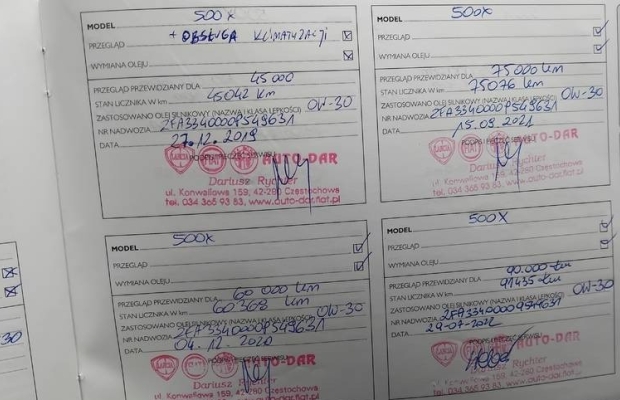 MODEL 500X
PRZEGLĄD + OBSŁUGA KLIMATYZACJI
WYMIANA OLEJU
PRZEGLĄD PRZEWIDZIANY DLA 45 000
STAN LICZNIKA W km 45042 Km
ZASTOSOWANO OLEJ SILNIKOWY (NAZWA I KLASA LEPKOŚCI) 0W-30
NR NADWOZIA ZFA3340000P549631
DATA 27.12.2019
AUTO-DAR
Dariusz Rychter
ul. Konwaliowa 159, 42-280 Częstochowa
tel. 034 365 93 83, www.auto-dar.fiat.pl
MODEL 500X
PRZEGLĄD
WYMIANA OLEJU
PRZEGLĄD PRZEWIDZIANY DLA 75000 km
STAN LICZNIKA W km 75076 km
ZASTOSOWANO OLEJ SILNIKOWY (NAZWA I KLASA LEPKOŚCI) 0W-30
NR NADWOZIA ZFA3340000P549631
DATA 15.09.2021
AUTO-DAR
Dariusz Rychter
ul. Konwaliowa 159, 42-280 Częstochowa
tel. 034 365 93 83, www.auto-dar.fiat.pl
MODEL 500X
PRZEGLĄD
WYMIANA OLEJU
PRZEGLĄD PRZEWIDZIANY DLA 60 000 km
STAN LICZNIKA W km 60 368 km
ZASTOSOWANO OLEJ SILNIKOWY (NAZWA I KLASA LEPKOŚCI) 0W-30
NR NADWOZIA ZFA3340000P549631
DATA 04.12.2020
AUTO-DAR
Dariusz Rychter
ul. Konwaliowa 159, 42-280 Częstochowa
tel. 034 365 93 83, www.auto-dar.fiat.pl
MODEL 500X
PRZEGLĄD
WYMIANA OLEJU
PRZEGLĄD PRZEWIDZIANY DLA 90.000 km
STAN LICZNIKA W km 91435 km
ZASTOSOWANO OLEJ SILNIKOWY (NAZWA I KLASA LEPKOŚCI) 0W-30
NR NADWOZIA ZFA3340000P549631
DATA 29-07-2022
AUTO-DAR
Dariusz Rychter
ul. Konwaliowa 159, 42-280 Częstochowa
tel. 034 365 93 83, www.auto-dar.fiat.pl
30